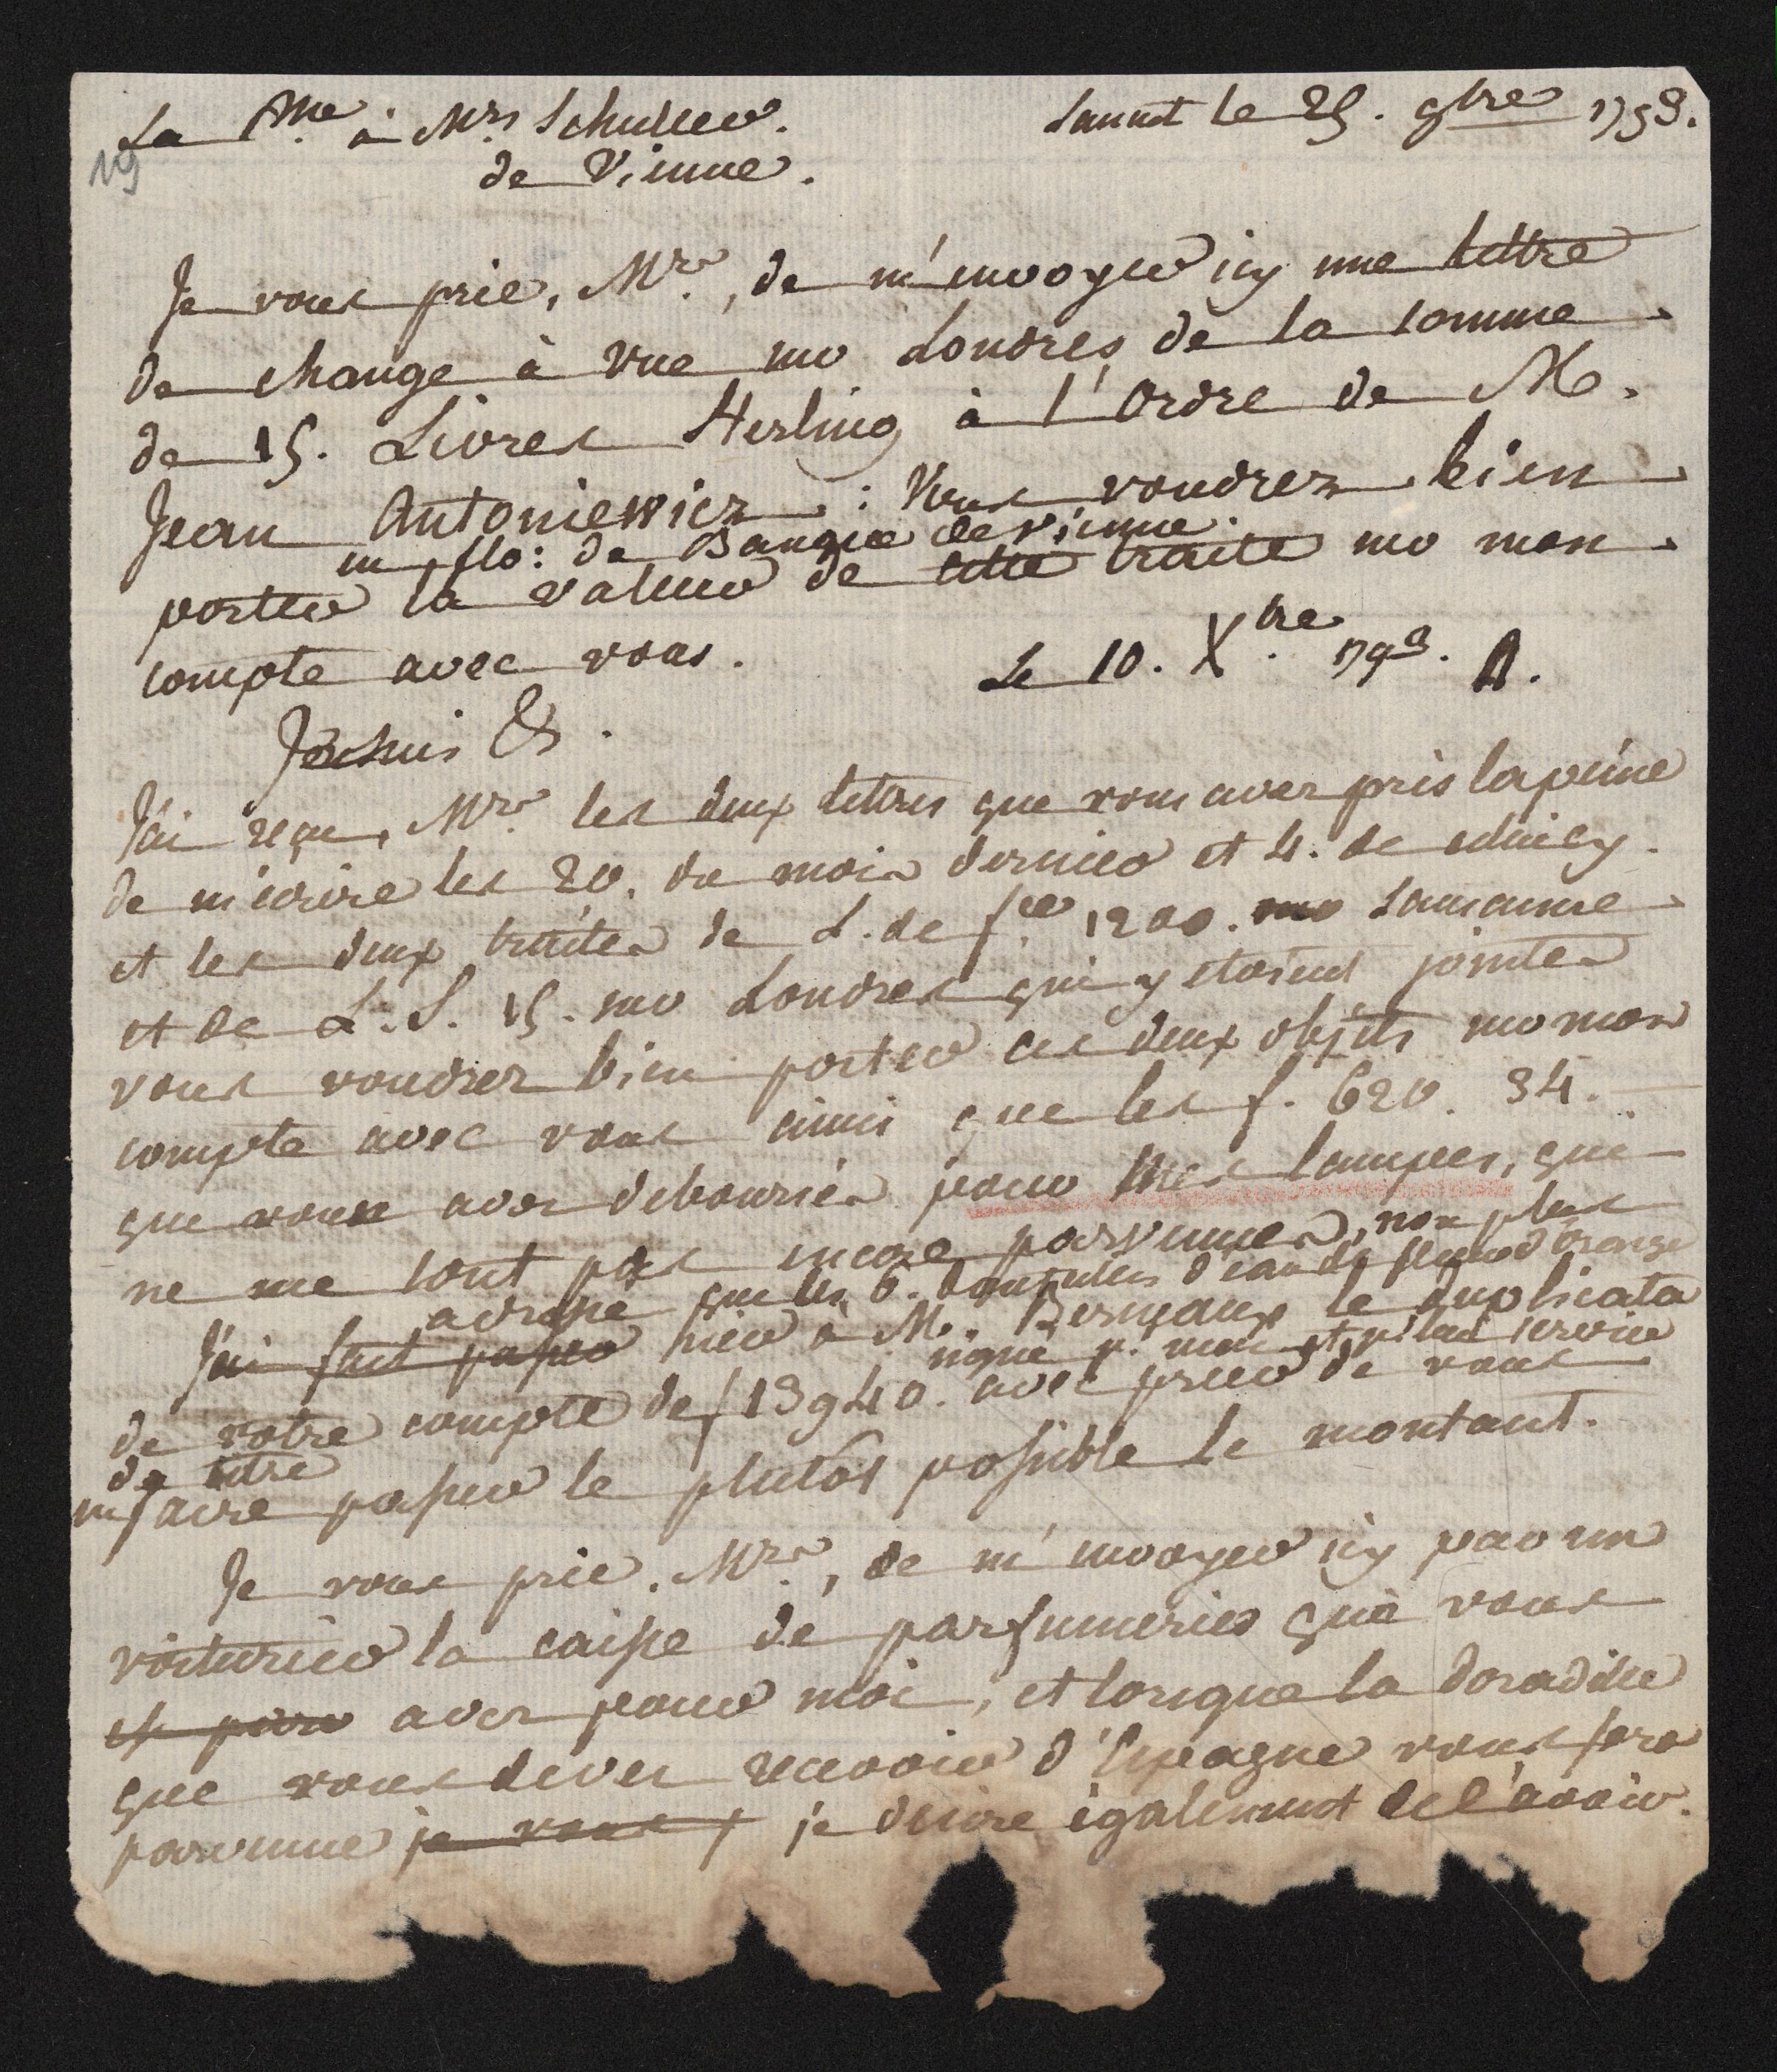 La Pme. à Mrs Schuller.
Lanut le 25. 9bre 1798.
19
de Vienne.
Je vous prie, Mrs., de m'envoyer icy une lettre
de change à vue sur Londres, de la somme
de 15. Livres Sterling à l'Ordre de M.
Jean Antoniewicz : Vous voudrez bien
en flo: de Banque de Vienne.
porter la valeur de cette traite sur mon
compte avec vous.
Le 10. Xbre. 1798. A.
Je suis &.
J'ai reçu, Mrs. les deux lettres que vous avez pris la peine
de m'écrire les 20. du mois dernier et 4. de celuicy.
et les deux traites de L. de fce 1200. sur
et de L. S. 15. sur Londres qui y etoient jointes
vous voudrez bien porter ces deux objets sur mon
compte avec vous ainsi que les f. 620. 34.
que vous avez deboursés pour mes lampes, qui
ne me sont pas encore parvenues, non plus
que les 6. bouteilles d'eau de fleurs d'Orange
adressé
J'ai fait passer hier à M. le duplicata
signé p. moi et p.
de votre compte de f 13940. avec priere de vous
de votre
en faire passer le plutôt possible le montant.
Je vous prie. Mrs., de m'envoyer icy par un
voiturier la caisse de parfumeries que vous
avez pour moi, et lorsque la doradille
que vous devez recevoir d'Espagne vous sera
parvenue je vous je desire également de l'avoir.